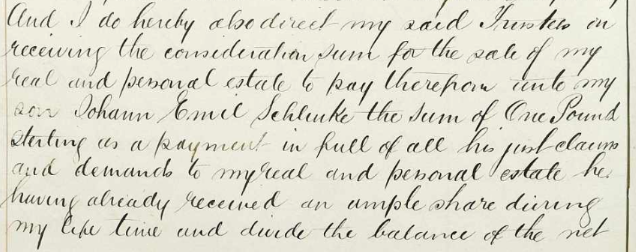 And I do hereby also direct my said Trustees on
receiving the consideration sum for the sale of my
real and personal estate to pay therefrom unto my
son Johann Emil Schlinke the sum of One Pound
sterling as a payment in full of all his just claims
and demands to my real and personal estate he
having already received an ample share during
my life time and divide the balance of the net